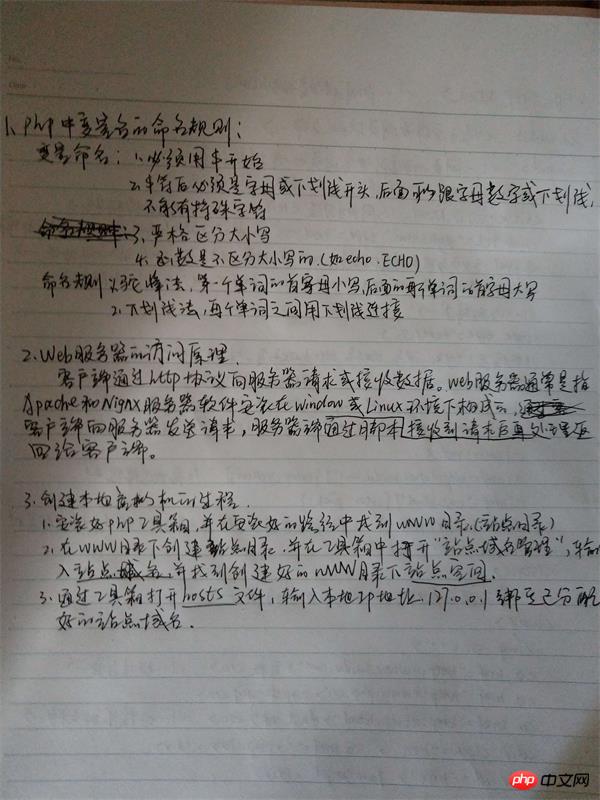 1、PhP中变量名的命名规则：
变量命名：1、必须用$开始
2、$符后必须是字母或下划线开头，后面可跟字母数字或下划线，
不能有特殊字符
3、严格区分大小写
4、函数是不区分大小写的.(如echo.ECHO)
命名规则 1、驼峰法，第一个单词的首字母小写，后面的每个单词的首字母大写
2、下划线法，每个单词之间用下划线连接
2、Web服务器的访问原理.
客户端通过http协议向服务器请求或接收数据。Web服务器通常是指
Apache和Nignx服务器软件安装在window或Linux环境下构成,
客户端向服务器发送请求，服务器端通过脚本接收到请求后再处理返
回给客户端。
3、创建本地虚拟机的过程.
1、安装好PhP工具箱，并在安装好的路径中找到WWW目录.(站点目录)
2、在WWW目录下创建站点目录.并在工具箱中打开"站点域名管理"，输
入站点域名，并找到创建好的WWW目录下站点空间.
3、通过工具箱打开hosts文件，输入本地ip地址.127.0.0.1 绑定已分配
好的站点域名.
php 中文网